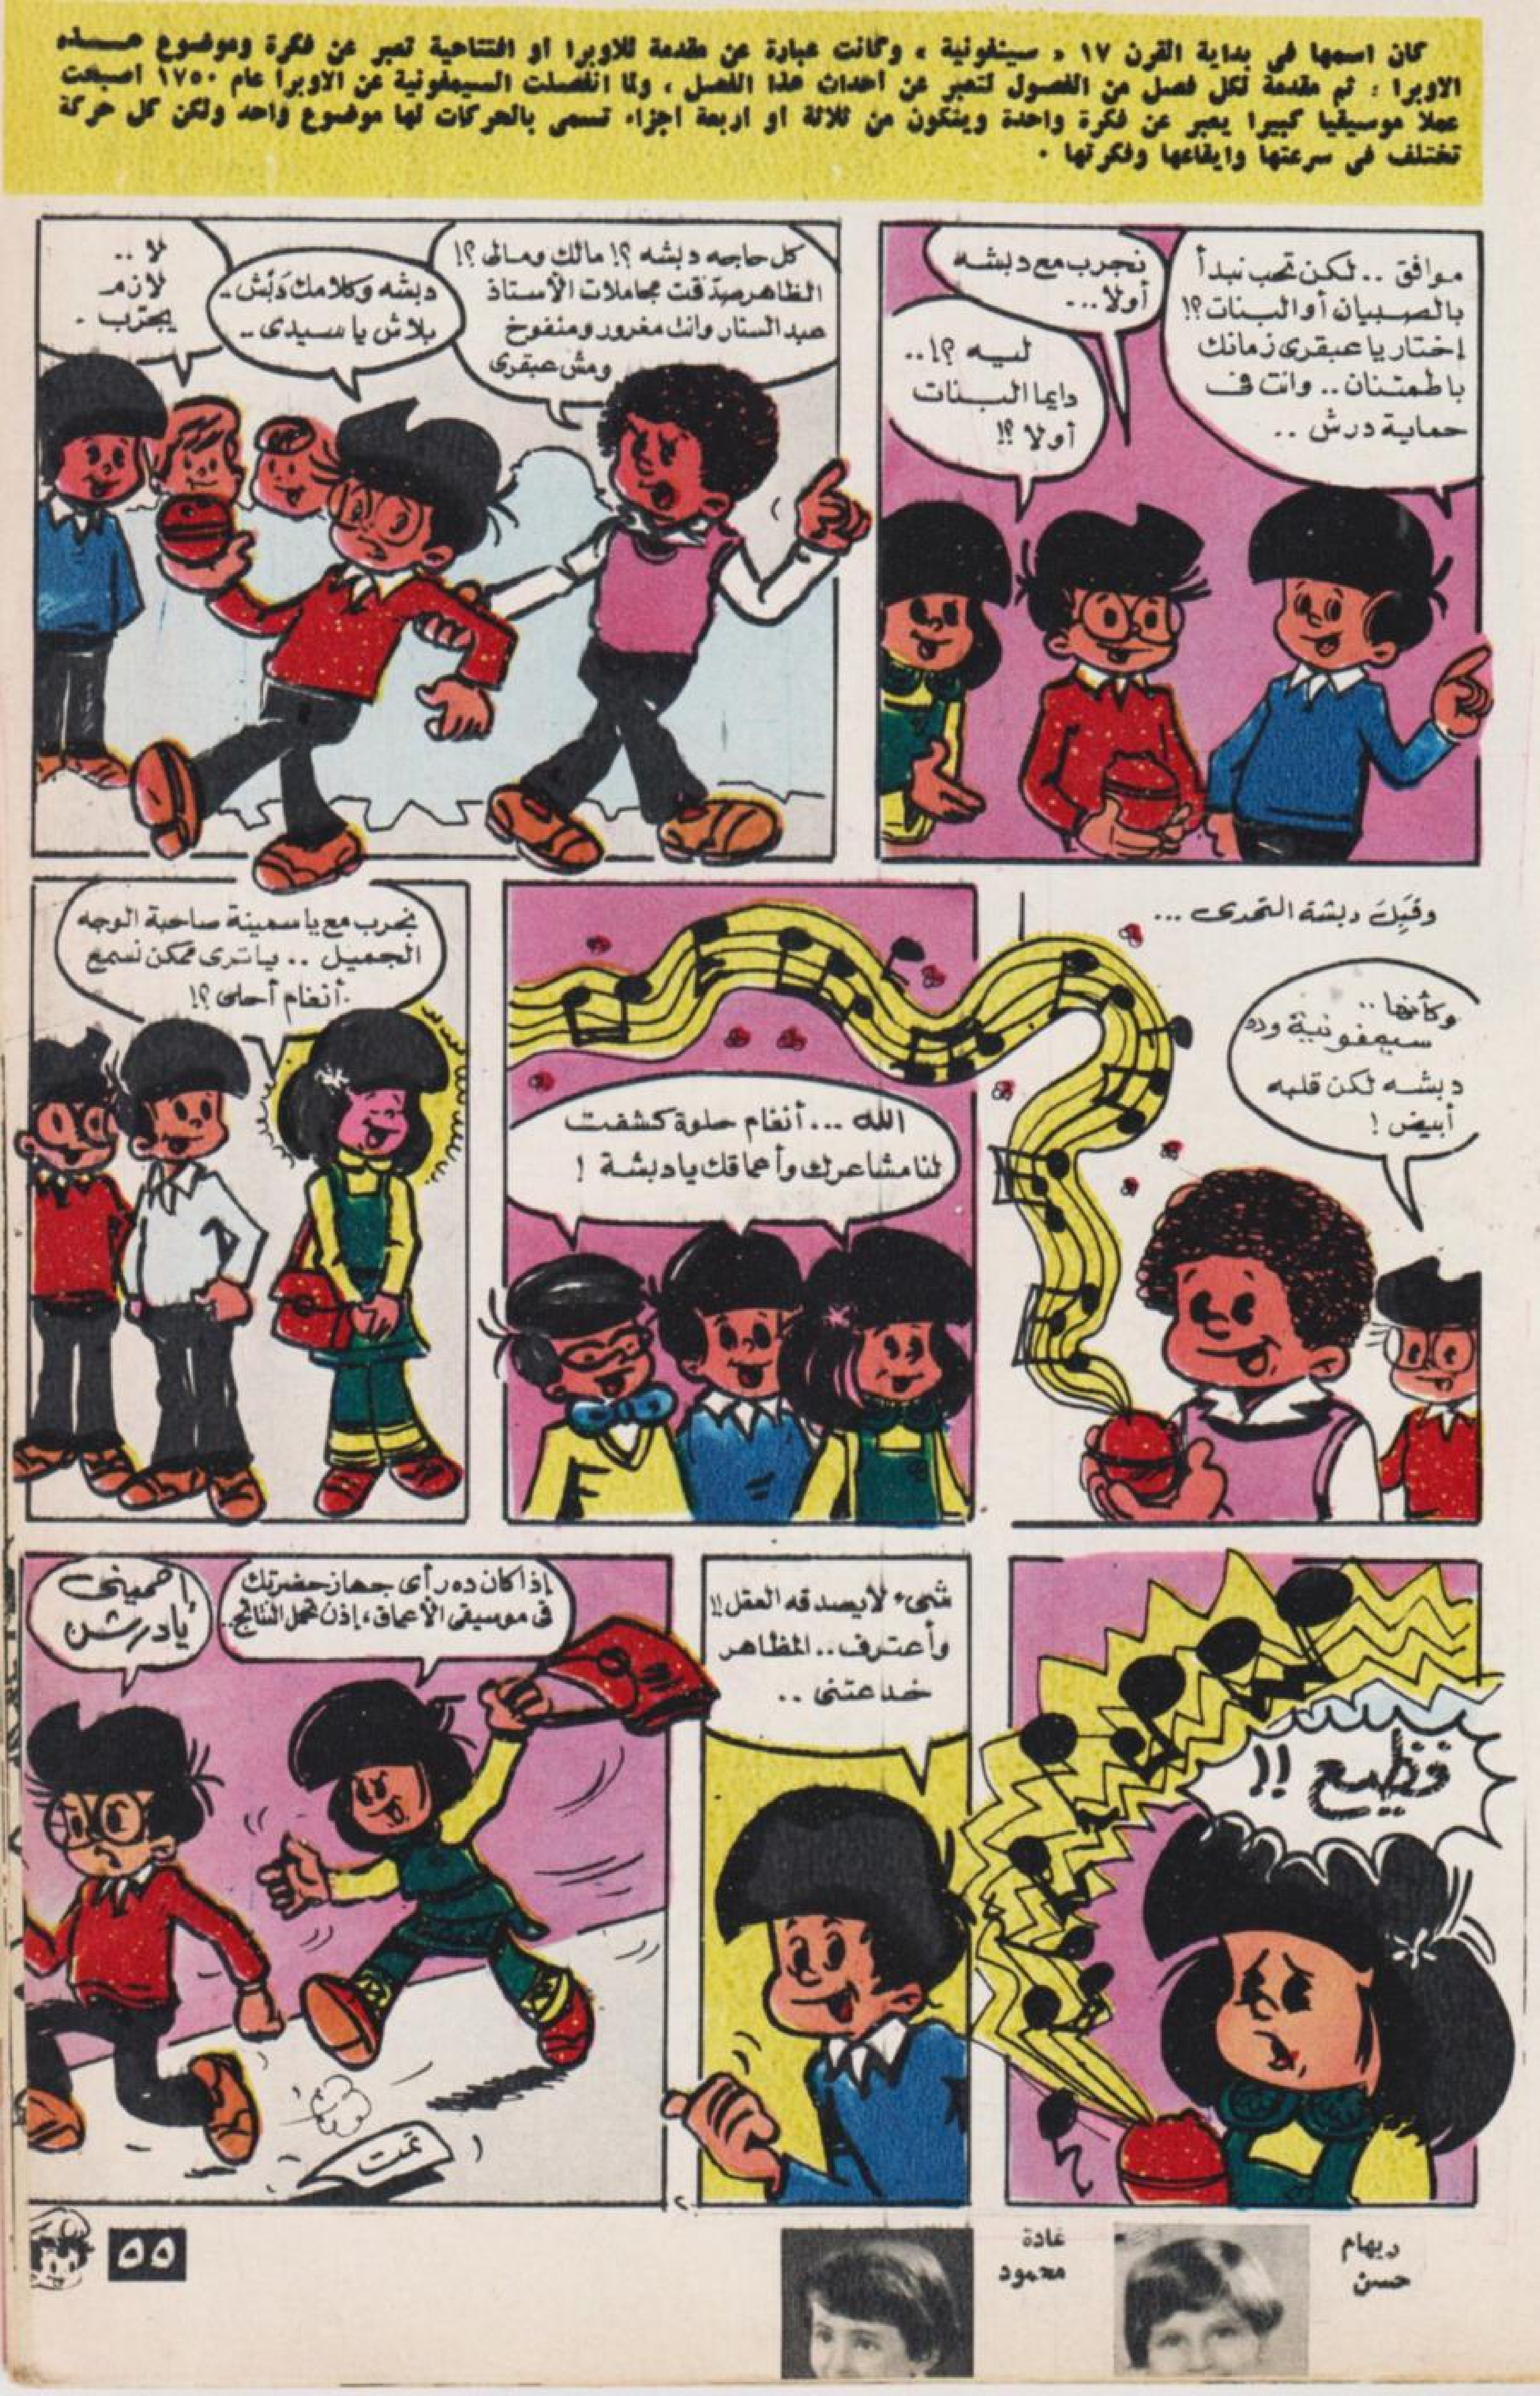 كان اسمها فى بداية القرن ١٧ « سينفونية » وكانت عبارة عن مقدمة للاوبرا او افتتاحية تعبر عن فكرة وموضوع هذه
الاوبرا ، ثم مقدمة لكل فصل من الفصول لتعبر عن أحداث هذا الفصل ، ولما انفصلت السيمفونية عن الاوبرا عام ١٧٥٠ اصبحت
عملا موسيقيا كبيرا يعبر عن فكرة واحدة ويتكون من ثلاثة او اربعة اجزاء تسمى بالحركات لها موضوع واحد ولكن كل حركة
تختلف فى سرعتها وايقاعها وفكرتها .
موافق .. لكن تحب نبدأ
بالصبيان أو البنات ؟!
إختار يا عبقرى زمانك
باطمئنان .. وانت فى
حماية درش ..
نجرب مع دبشه
أولا ...
ليه ؟! ..
دايما البنات
أولا ؟!
كل حاجه دبشه ؟! مالك ومالى ؟!
الظاهر صدقت مجاملات الأستاذ
عبد الستار وانت مغرور ومنفوخ
ومش عبقرى
دبشه وكلامك دَبْش ..
بلاش يا سيدى ..
لا ..
لازم
يجرّب .
وقَبِلَ دبشة التحدى ...
وكأنها ..
سيمفونية ورد
دبشه لكن قلبه
أبيض !
الله ... أنغام حلوة كشفت
لنا مشاعرك وأعماقك يا دبشة !
نجرب مع ياسمينة صاحبة الوجه
الجميل .. يا ترى ممكن نسمع
أنغام أحلى ؟!
فظيع !!
شىء لا يصدقه العقل !!
وأعترف .. المظاهر
خدعتنى ..
إذا كان ده رأى جهاز حضرتك
فى موسيقى الأعماق ، إذن تحمل النتائج ..
إحمينى
يا درش
تمت
٢
ريهام
حسن
غادة
محمود
٥٥